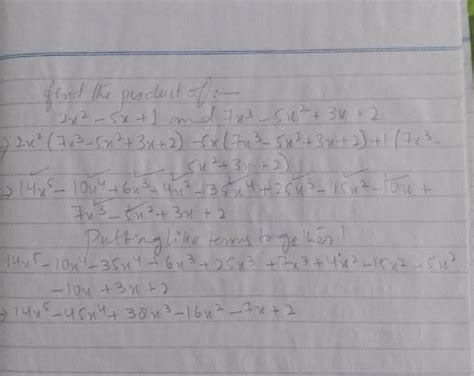 find the product of:-
2x² - 5x + 1 and 7x³ - 5x² + 3x + 2
⇒ 2x² (7x³ - 5x² + 3x + 2) - 5x (7x³ - 5x² + 3x + 2) + 1 (7x³ -
5x² + 3x + 2)
⇒ 14x⁵ - 10x⁴ + 6x³ + 4x² - 35x⁴ + 25x³ - 15x² - 10x +
7x³ - 5x² + 3x + 2
Putting like terms together!
14x⁵ - 10x⁴ - 35x⁴ + 6x³ + 25x³ + 7x³ + 4x² - 15x² - 5x²
- 10x + 3x + 2
⇒ 14x⁵ - 45x⁴ + 38x³ - 16x² - 7x + 2